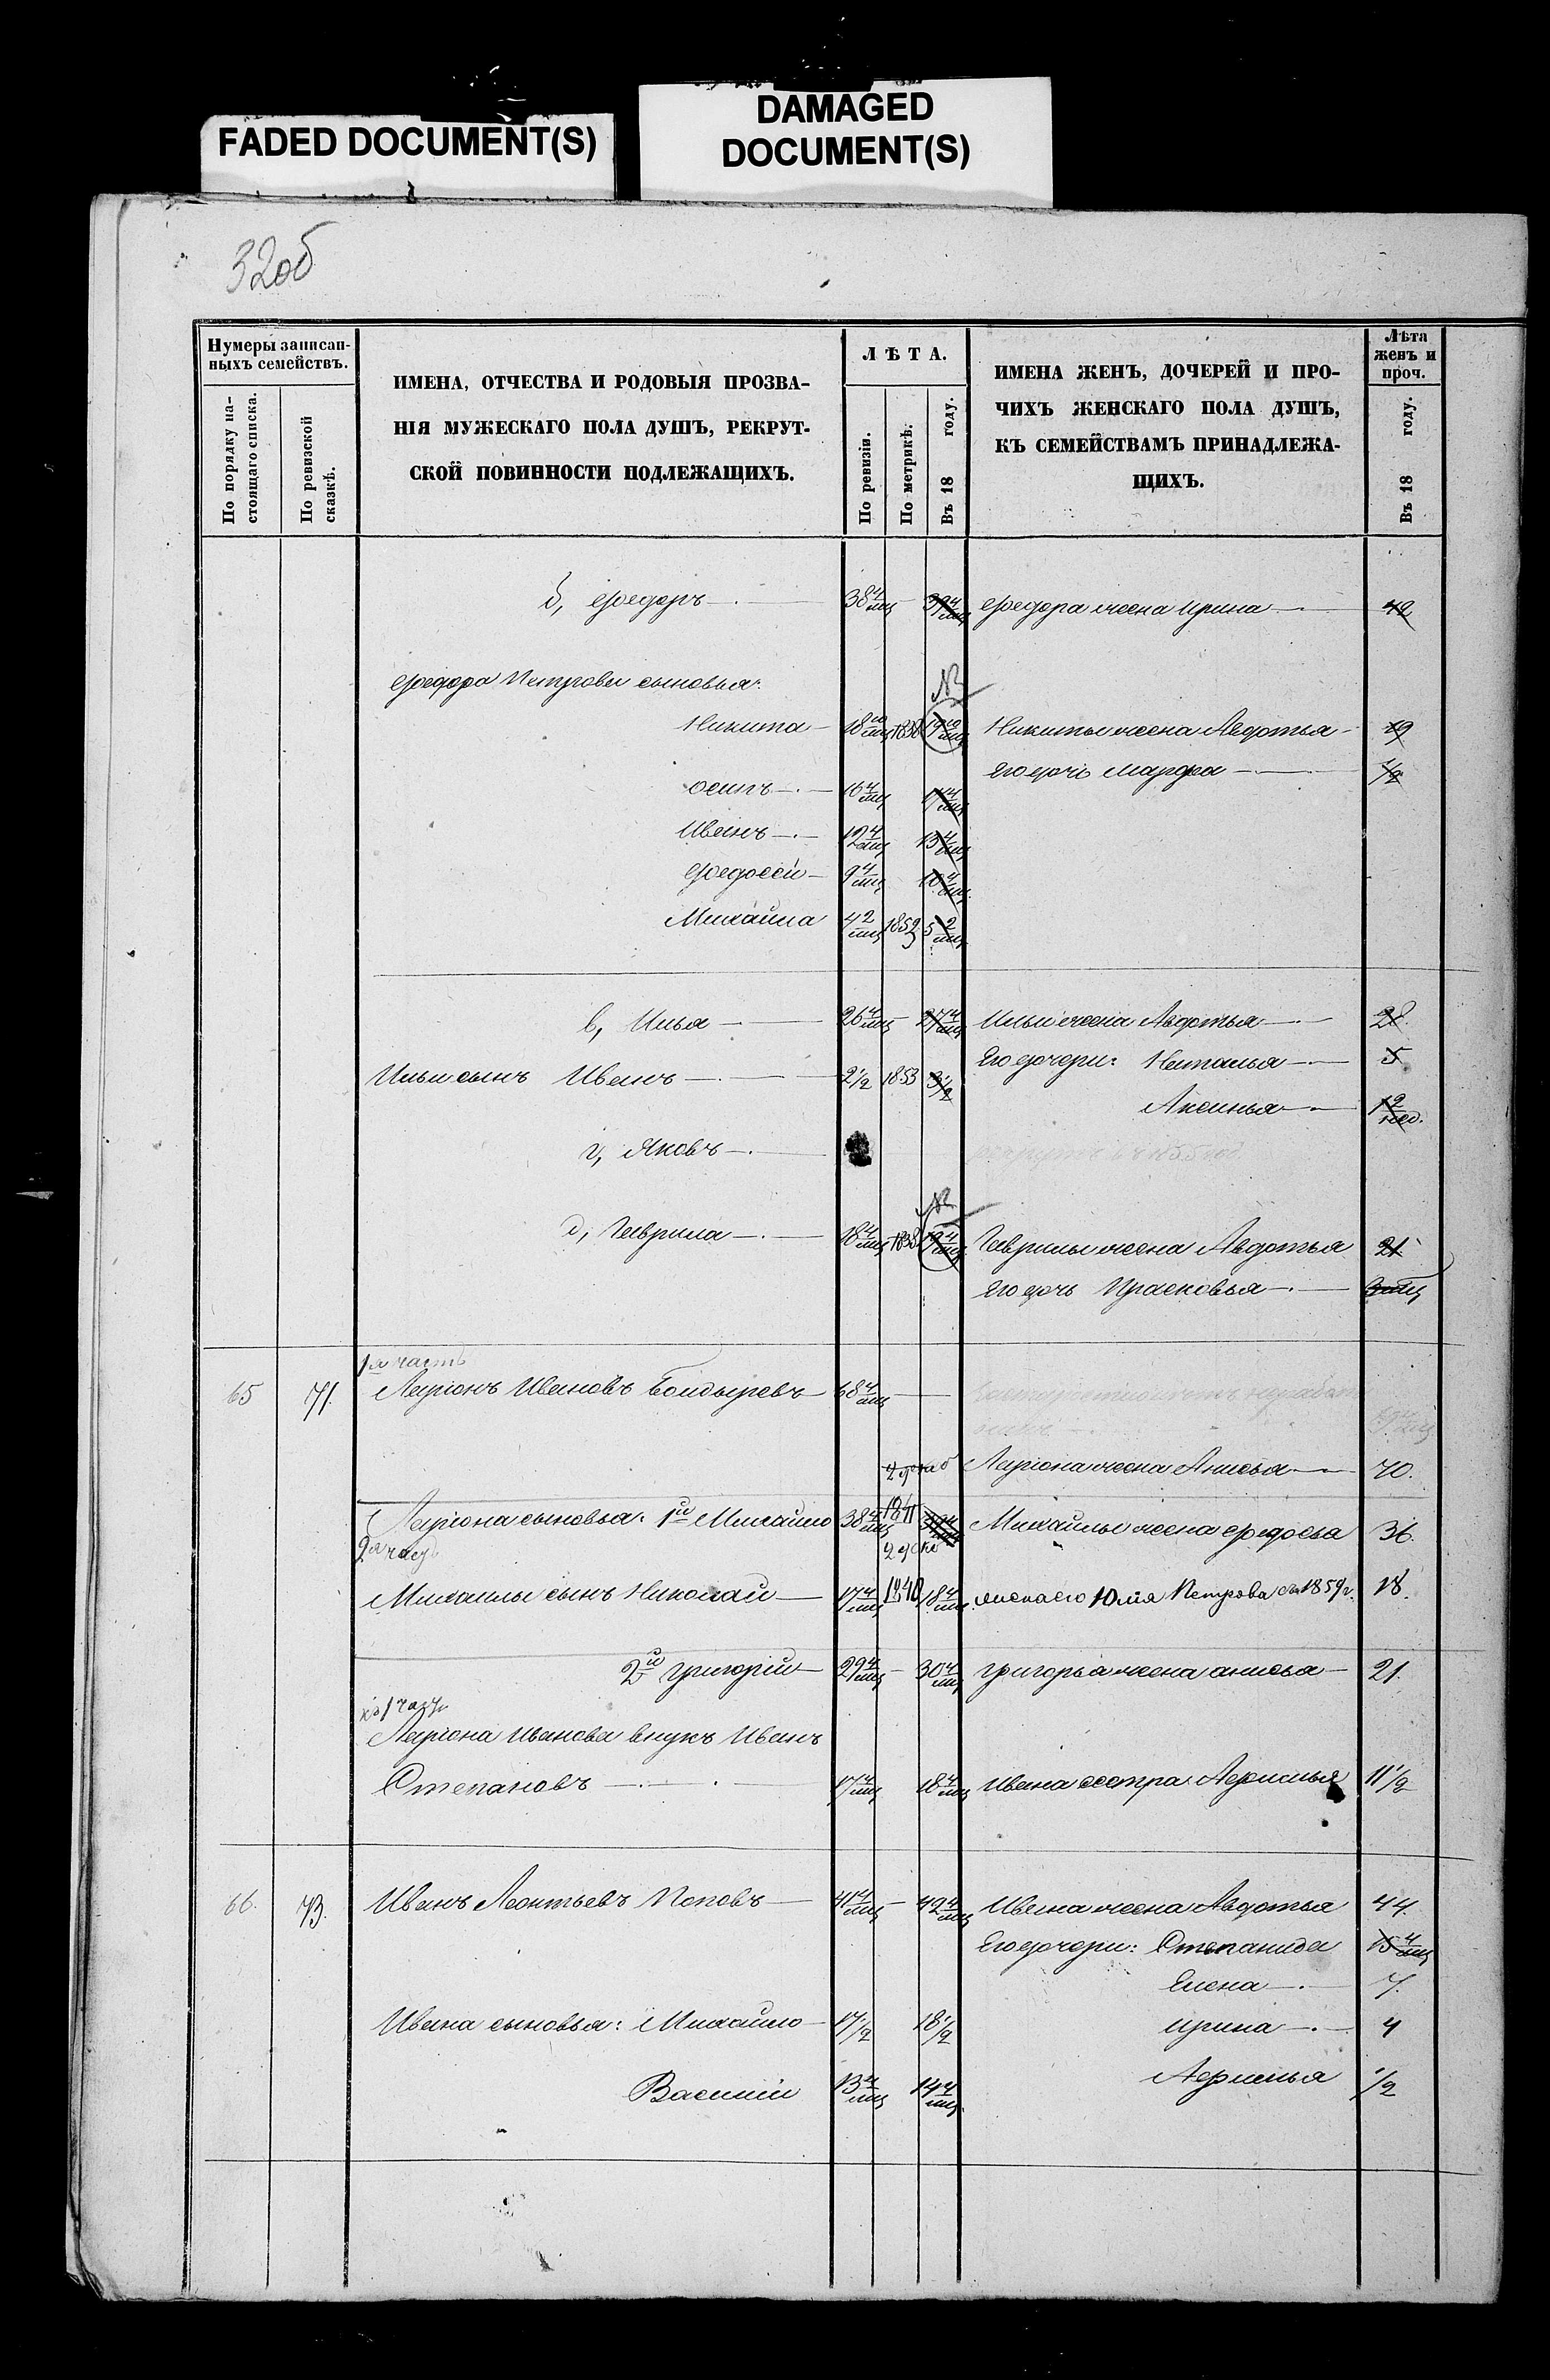 FADED DOCUMENT(S)
DAMAGED
DOCUMENT(S)
32об
Нумеры записан-
ныхъ семействъ.
По порядку на-
стоящаго списка.
По ревизской
сказкѣ.
ИМЕНА, ОТЧЕСТВА И РОДОВЫЯ ПРОЗВА-
НІЯ МУЖЕСКАГО ПОЛА ДУШЪ, РЕКРУТ-
СКОЙ ПОВИННОСТИ ПОДЛЕЖАЩИХЪ.
ЛѢТА.
По ревизіи.
По метрикѣ.
Въ 18 году.
ИМЕНА ЖЕНЪ, ДОЧЕРЕЙ И ПРО-
ЧИХЪ ЖЕНСКАГО ПОЛА ДУШЪ,
КЪ СЕМЕЙСТВАМЪ ПРИНАДЛЕЖА-
ЩИХЪ.
Лѣта
женъ и
проч.
Въ 18 году.
б, Федоръ — 38 4/мц — 39 4/мц Федора жена Ирина — 42
Федора Петрова сыновья:
№
Никита — 18 10/мц 1838 19 10/мц Никиты жена Авдотья — 19
Его дочь Марфа — 1/2
Осипъ — 16 4/мц 17 4/мц
Иванъ — 12 4/мц 13 4/мц
Федосей — 9 4/мц 10 4/мц
Михайла 4 2/мц 1852 5 2/мц
в, Илья — 26 4/мц — 27 4/мц Ильи жена Авдотья — 28.
Его дочери: Наталья — 5
Ильи сынъ Иванъ — 2 1/2 1853 3 1/2
Аксинья — 12 нед.
г, Яковъ —
№
д, Гаврила — 18 4/мц 1838 19 4/мц Гаврилы жена Авдотья 21
Его дочь Прасковья — 3 мц
1я часть
65 71. Ларіонъ Ивановъ Болдыревъ — 68 4/мц —
Ларіона жена Анисья — 70.
Ларіона сыновья: 1й Михайло 38 4/мц 39 4/мц Михайлы жена Федосья 36.
2я часть
1841
Михаилы сынъ Николай — 17 4/мц 1840 18 4/мц жена его Юлія Петрова съ 1859 г. 18.
2й Григорій — 29 4/мц — 30 4/мц Григорья жена Анисья — 21.
къ 1 части
Ларіона Иванова внукъ Иванъ
Степановъ — 17 4/мц 18 4/мц Ивана сестра Лерисья 11 1/2
66. 73. Иванъ Леонтьевъ Поповъ — 41 4/мц — 42 4/мц Ивана жена Авдотья 44.
Его дочери: Степанида 15 4/мц
Елена — 7.
Ивана сыновья: Михайло — 17 1/2 18 1/2 Ирина — 4
Василій 13 4/мц 14 4/мц 1/2